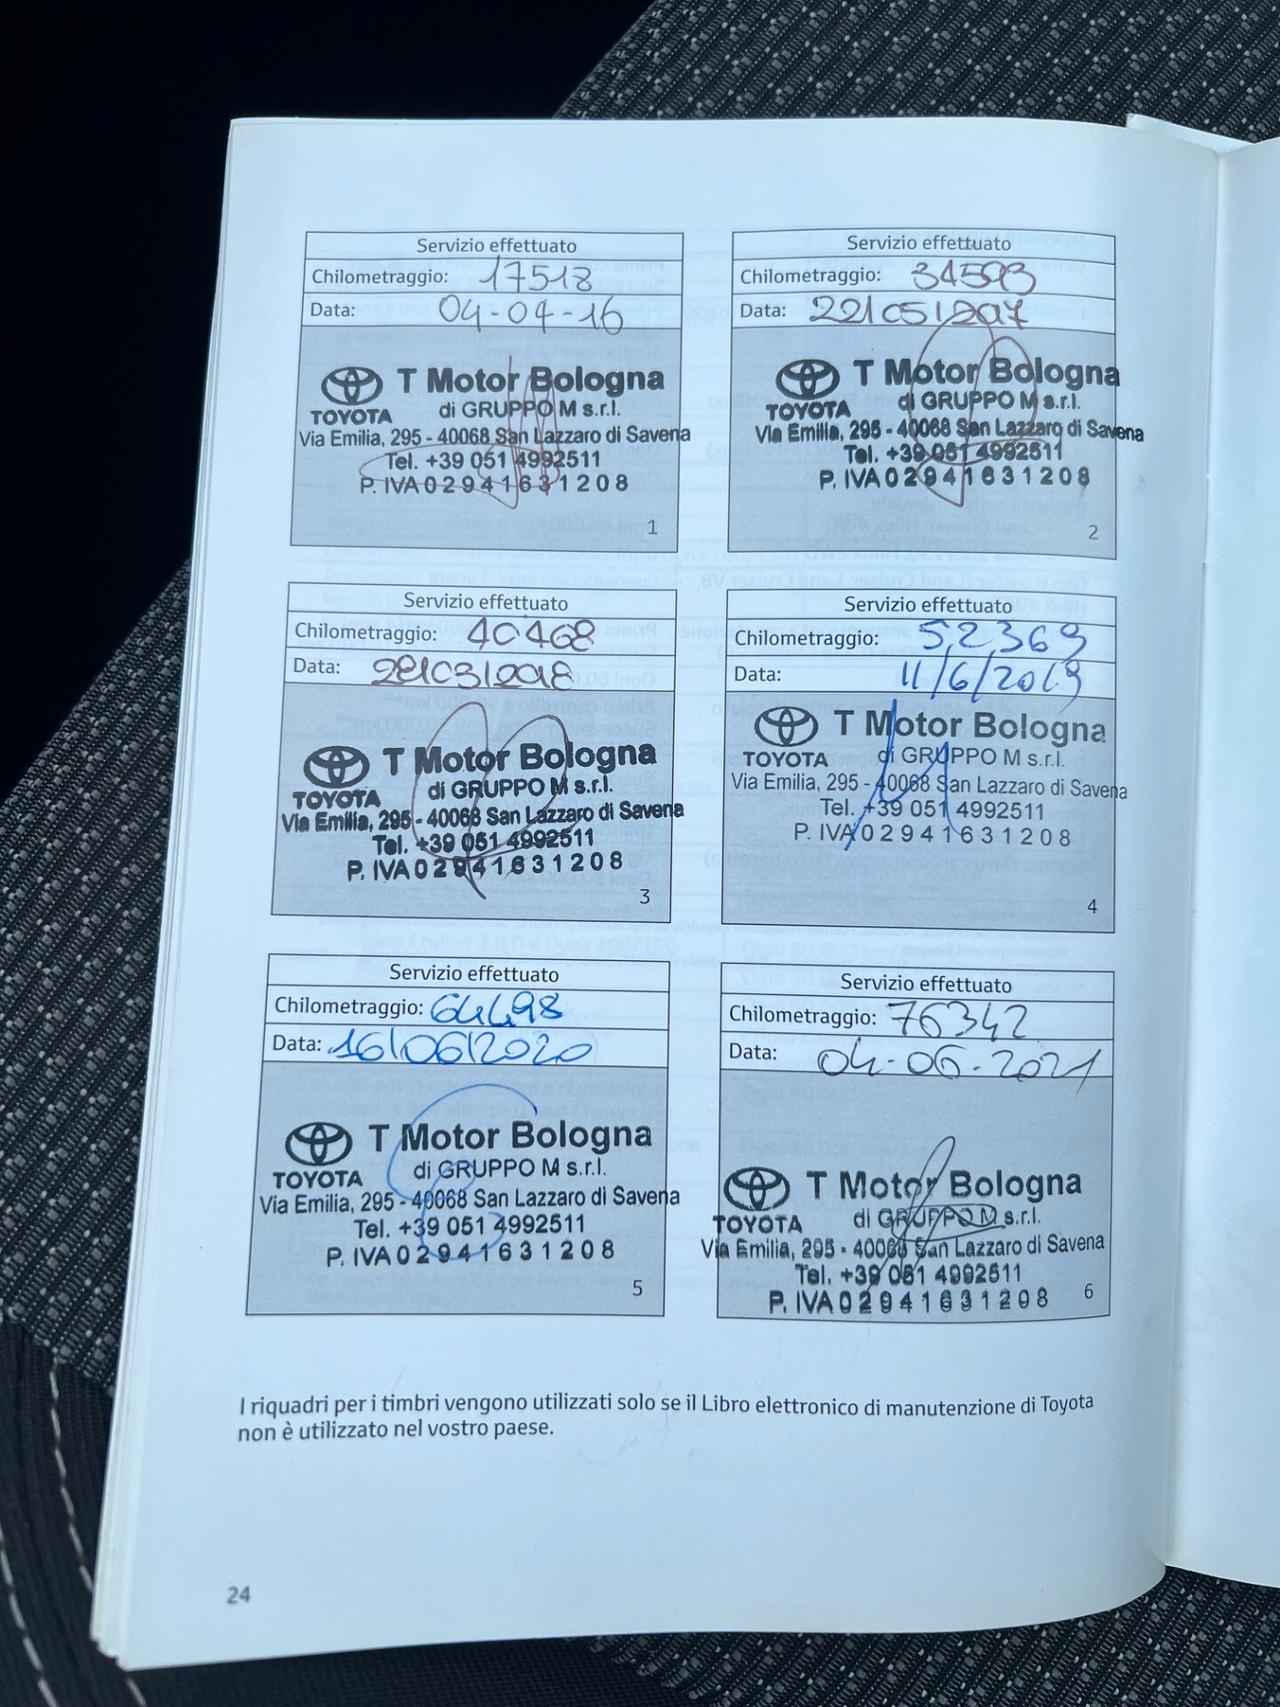 Servizio effettuato
Chilometraggio: 17518
Data: 04-04-16
T Motor Bologna
TOYOTA di GRUPPO M s.r.l.
Via Emilia, 295 - 40068 San Lazzaro di Savena
Tel. +39 051 4992511
P. IVA 02941631208
1
Servizio effettuato
Chilometraggio: 34593
Data: 22/05/2017
T Motor Bologna
TOYOTA di GRUPPO M s.r.l.
Via Emilia, 295 - 40068 San Lazzaro di Savena
Tel. +39 051 4992511
P. IVA 02941631208
2
Servizio effettuato
Chilometraggio: 40468
Data: 28/03/2018
T Motor Bologna
TOYOTA di GRUPPO M s.r.l.
Via Emilia, 295 - 40068 San Lazzaro di Savena
Tel. +39 051 4992511
P. IVA 02941631208
3
Servizio effettuato
Chilometraggio: 52,369
Data: 11/6/2019
T Motor Bologna
TOYOTA di GRUPPO M s.r.l.
Via Emilia, 295 - 40068 San Lazzaro di Savena
Tel. +39 051 4992511
P. IVA 02941631208
4
Servizio effettuato
Chilometraggio: 64498
Data: 16/06/2020
T Motor Bologna
TOYOTA di GRUPPO M s.r.l.
Via Emilia, 295 - 40068 San Lazzaro di Savena
Tel. +39 051 4992511
P. IVA 02941631208
5
Servizio effettuato
Chilometraggio: 76342
Data: 04-06-2021
T Motor Bologna
TOYOTA di GRUPPO M s.r.l.
Via Emilia, 295 - 40068 San Lazzaro di Savena
Tel. +39 051 4992511
P. IVA 02941631208
6
I riquadri per i timbri vengono utilizzati solo se il Libro elettronico di manutenzione di Toyota
non è utilizzato nel vostro paese.
24